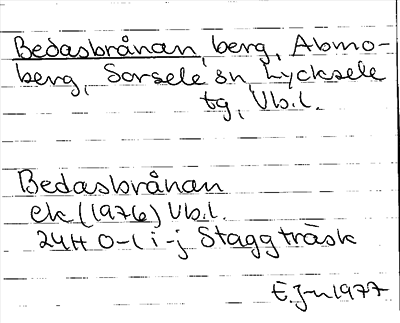 Bedasbrånan, berg, Abmo-
berg, Sorsele sn, Lycksele
tg, Vb.l.
Bedasbrånan
ek (1976) Vb.l.
24H 0-1 i-j Staggträsk
E.J-n 1977